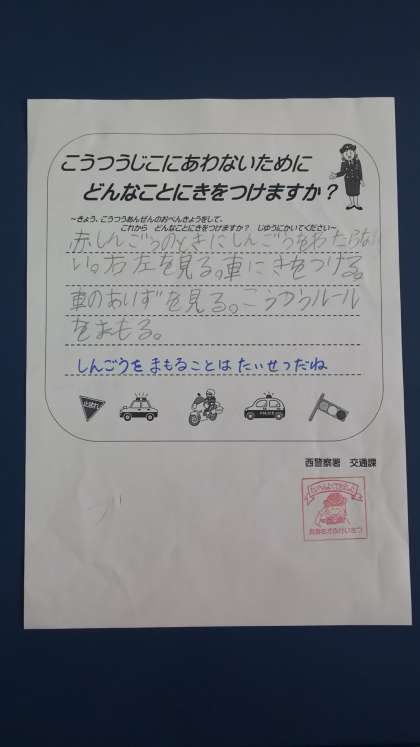 こうつうじこにあわないために
どんなことにきをつけますか？
～きょう、こうつうあんぜんのおべんきょうをして、
これから　どんなことにきをつけますか？　じゆうにかいてください～
赤しんごうのときにしんごうをわたらな
い。右左を見る。車にきをつける。
車のあいずを見る。こうつうルール
をまもる。
しんごうを まもることは たいせつだね
止まれ
POLICE
西警察署　交通課
たいへんよくできました